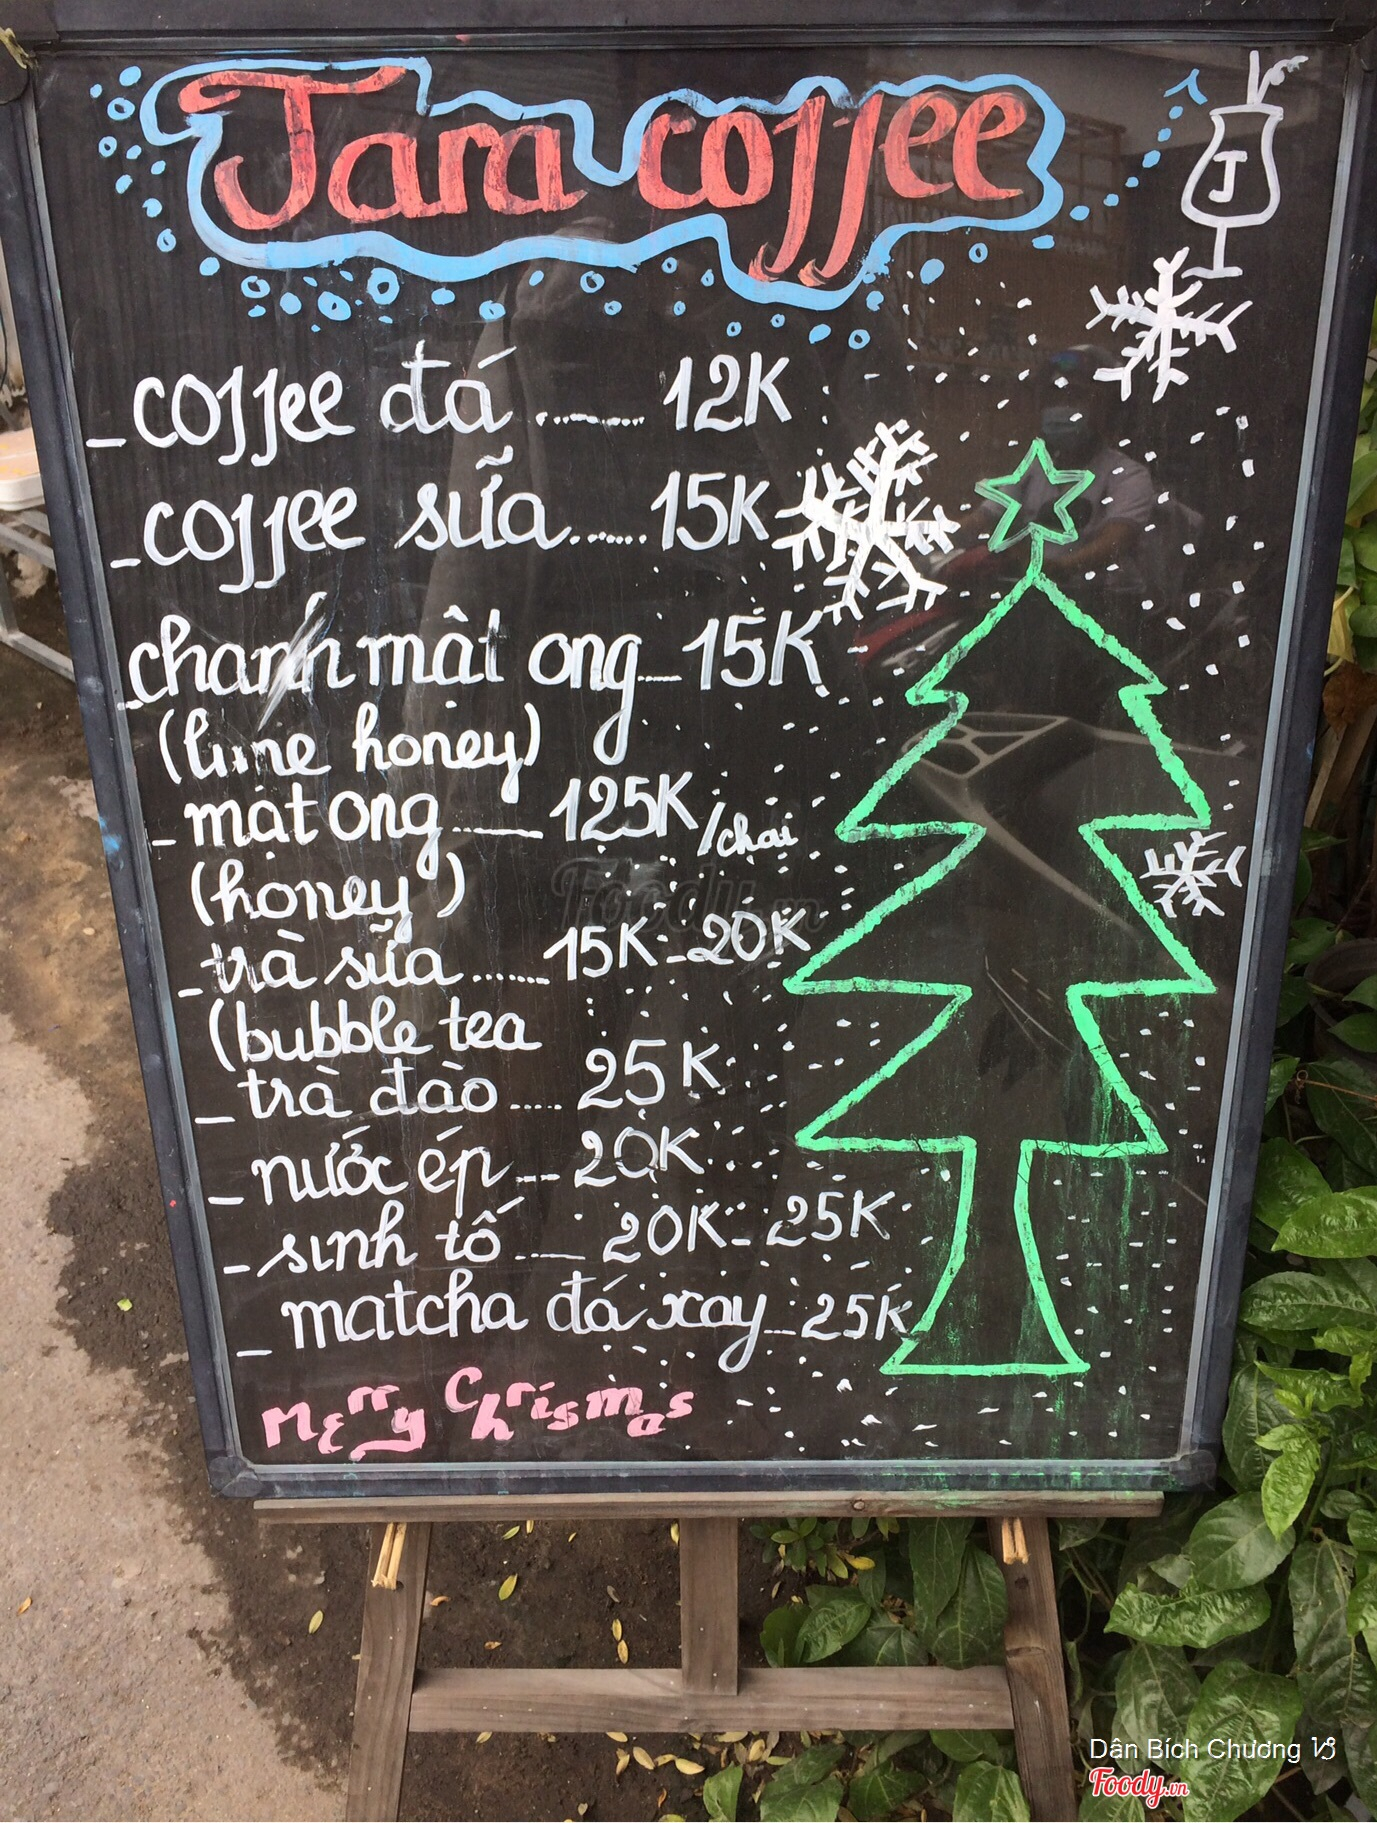 Jara coffee
J
- coffee đá ........ 12K
- coffee sữa ...... 15K
- chanh mật ong ..... 15K
(lime honey)
- mật ong ..... 125K/chai
(honey)
- trà sữa ...... 15K - 20K
(bubble tea
- trà đào ..... 25K
- nước ép ... 20K
- sinh tố ..... 20K - 25K
- matcha đá xay ... 25K
Merry Chrismas
Foody.vn
Dân Bích Chương
Foody.vn